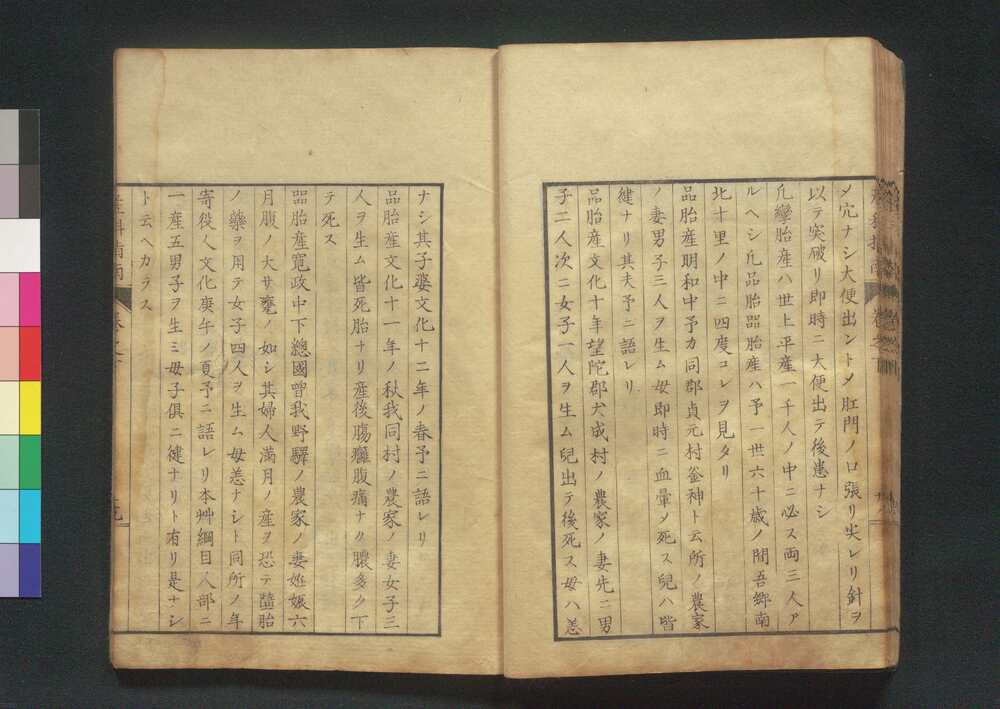 メ穴ナシ大便出ントメ肛門ノ口張リ尖レリ針ヲ
以テ突破リ即時ニ大便出テ後患ナシ
凢孿胎産ハ世上平産一千人ノ中ニ必ス両三人ア
ルヘシ凢品胎㗊胎産ハ予一世六十歳ノ間吾郷南
北十里ノ中ニ四度コレヲ見タリ
品胎産明和中予カ同郡貞元村釜神ト云所ノ農家
ノ妻男子三人ヲ生ム母即時ニ血暈ソ死ス兒ハ皆
健ナリ其夫予ニ語レリ
品胎産文化十年望陀郡犬成村ノ農家ノ妻先ニ男
子二人次ニ女子一人ヲ生ム兒出テ後死ス母ハ恙
ナシ其子婆文化十二年ノ春予ニ語レリ
品胎産文化十一年ノ秋我同村ノ農家ノ妻女子三
人ヲ生ム皆死胎ナリ産後腸癰腹痛ナク膿多ク下
テ死ス
㗊胎産寛政中下總國曽我野驛ノ農家ノ妻姙娠六
月腹ノ大サ甕ノ如シ其婦人満月ノ産ヲ恐テ墮胎
ノ藥ヲ用テ女子四人ヲ生ム母恙ナシト同所ノ年
寄役人文化庚午ノ夏予ニ語レリ本艸綱目人部ニ
一産五男子ヲ生ミ母子俱ニ健ナリト有リ是ナシ
ト云ヘカラス
産科指南
巻之下